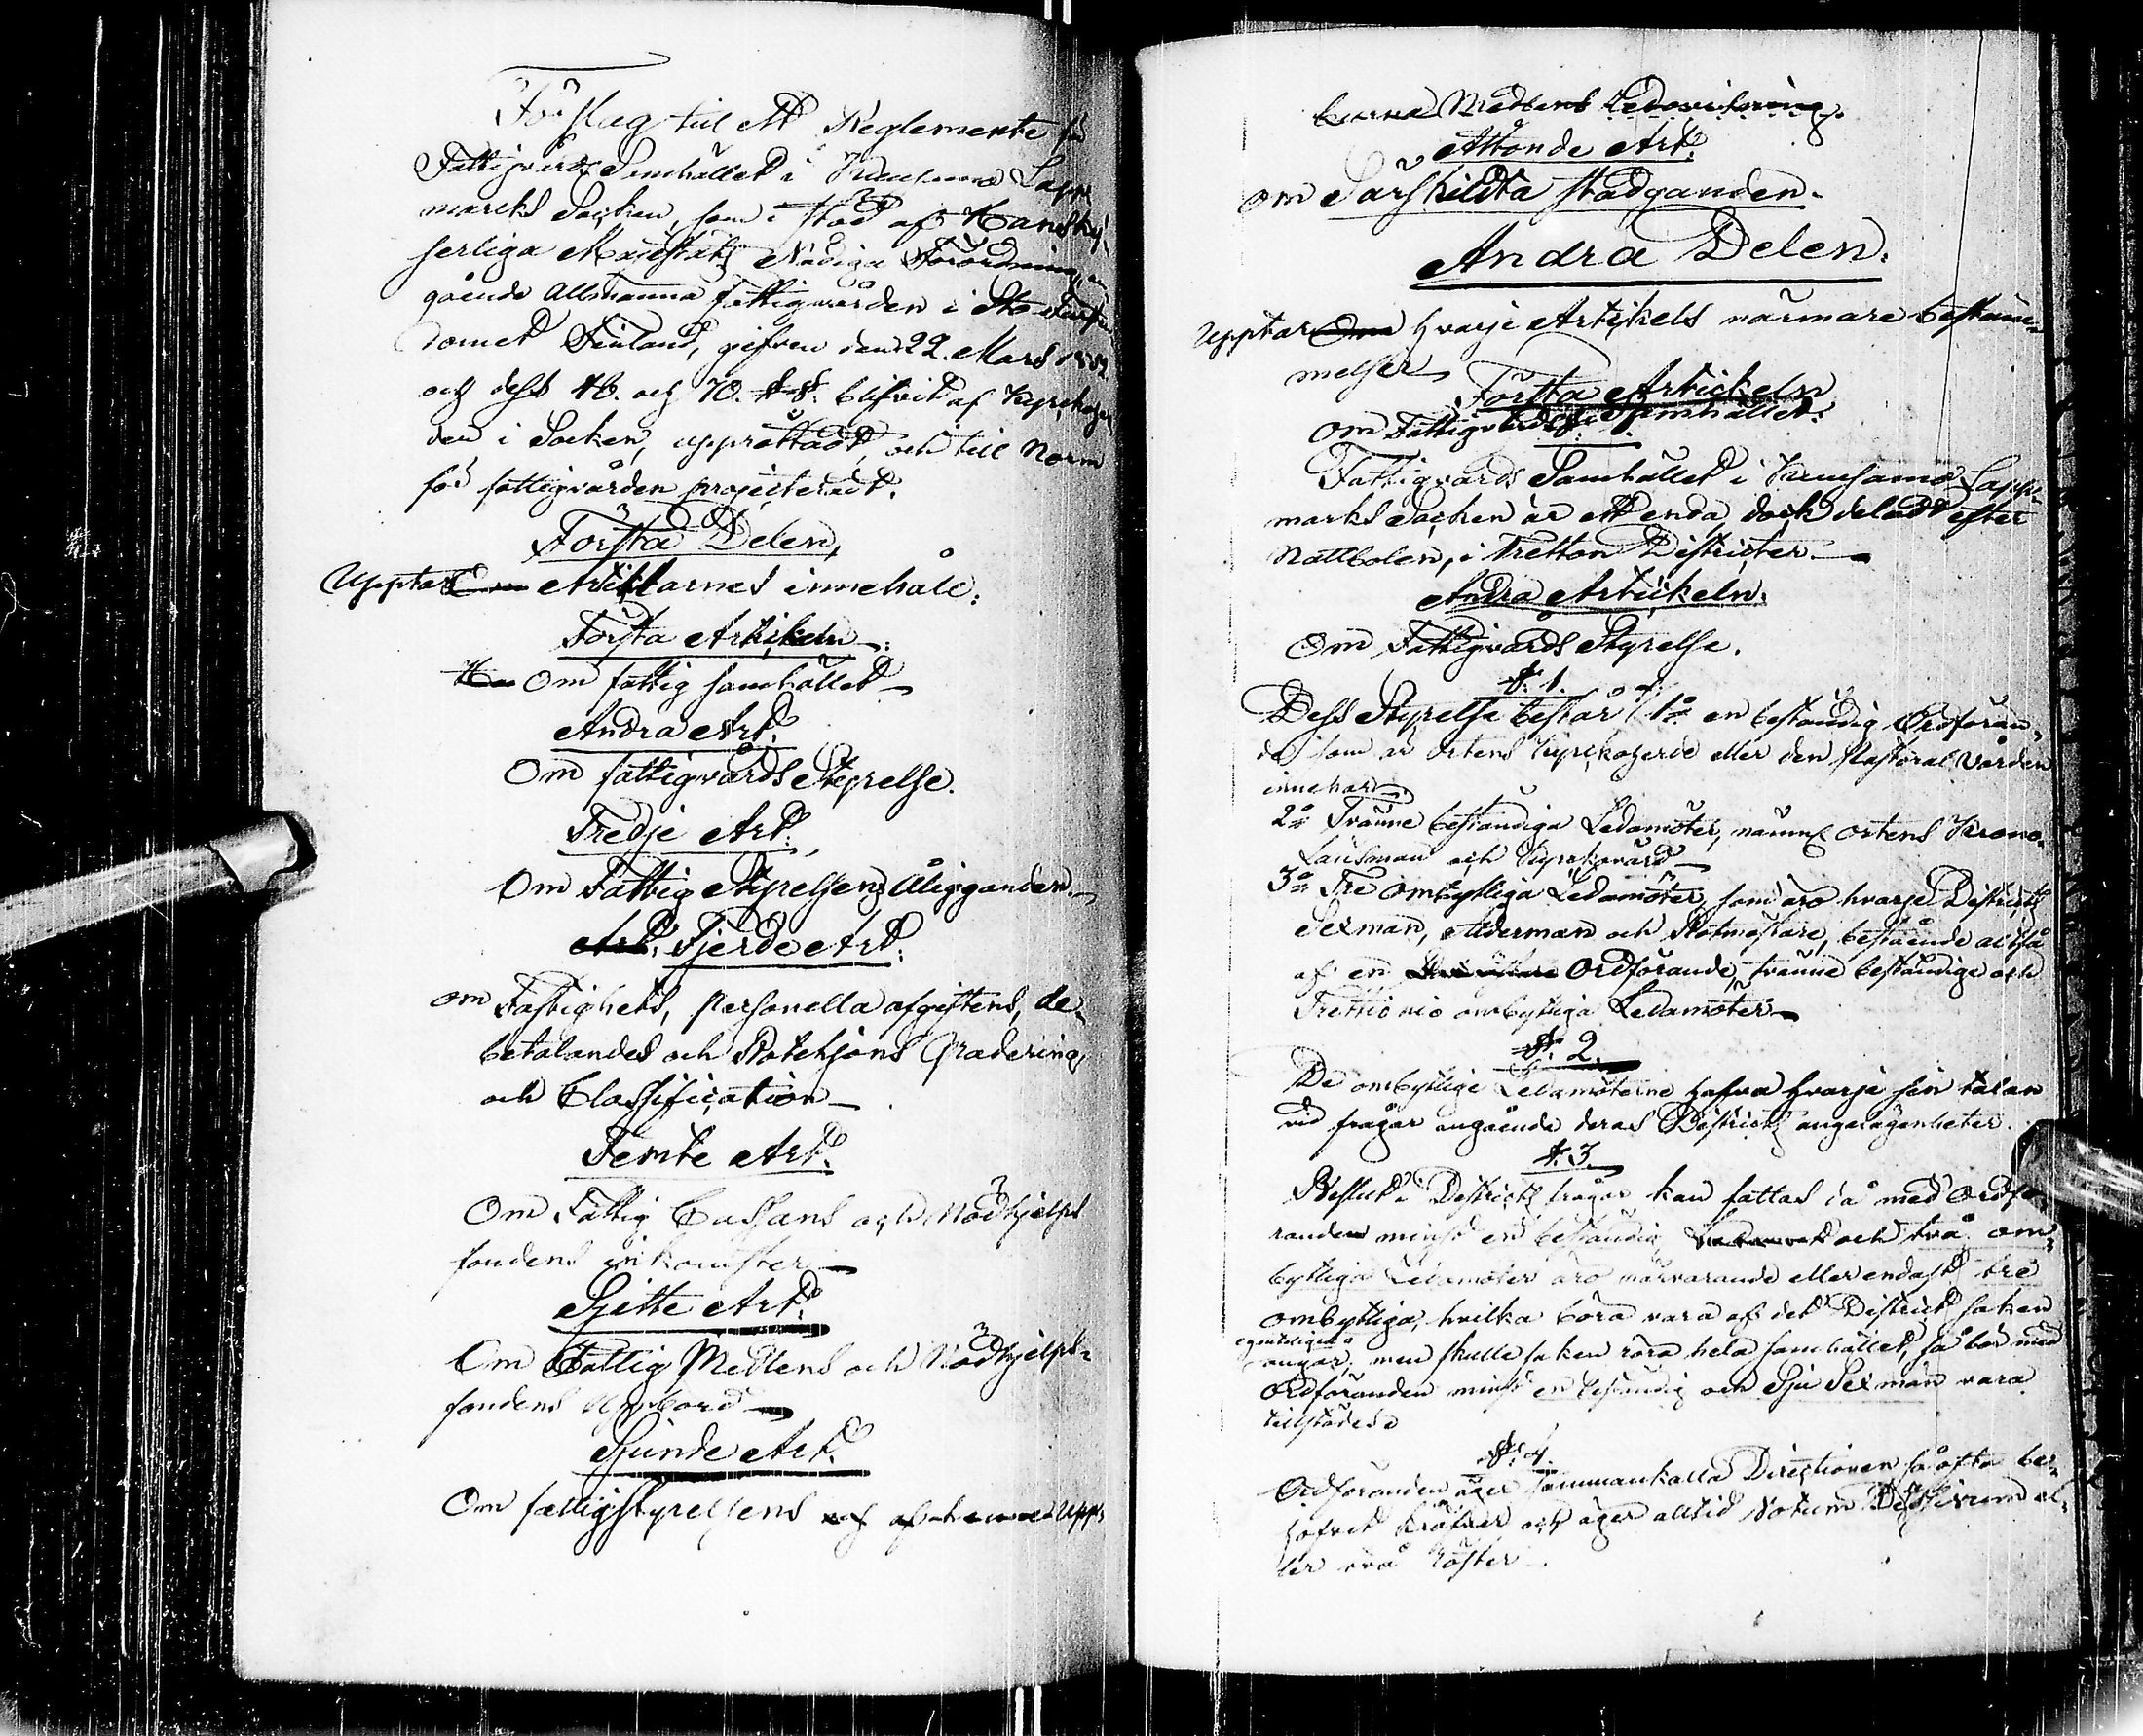 Förslag till ett Reglemente för
Fattigvårds Samhället i Kuusamo Lapp
marcks Socken, som i stöd af Hans Kej-
serliga Majestäts Nådiga Förordning, an
gående Allmänna fattigvården i Stor Fursten
dömet Finland, gifven den 22. Mars 1852
och dess 48. och 70. §§. blifvit af Kyrckoher
den i Socken, upprättadt, och till Norm
för fattigvården projecteradt.
Första Delen,
Upptar Articlarnes innehåll:
Första Artikeln.
Om fattig samhället
Andra Art:
Om fattigvårds Styrelse.
Tredje Art:
Om Fattig Styrelsens Åligganden.
Art: Fjerde Art:
om Fastighets, personella afgiftens, de-
betalandes och Rotehjons Gradering
och Classification
Femte Art:
Om Fattig Cassans och Nödhjelps
fondens inkomster
Sjette Art:
Om Fattig Medlens och Nödhjelps-
fondens Uppbörd
Sjunde Art:
Om fattigstyrelsens och af henne Upp-
burna Medlens Redovisning.
Åttonde Art:
om Särskildta stadganden.
Andra Delen.
Upptar Om hvarje Artikels närmare bestäm-
melser
Första Artickeln
Om Fattigvårds Samhället:
Fattigvårds Samhället i Kuusamo Lapp-
marks Socken är ett enda, dock deladt efter
Nattbolen, i Tretton Districter.
Andra Artickeln.
Om Fattigvårds Styrelse.
§. 1.
Dess Styrelse består af 1o en beständig Ordföran-
de, som är Ortens Kyrckoherde eller den Pastoral Vården
innehar
2o Tvänne beständiga Ledamöter, nämnl. ortens Krono-
Länsman och Kyrckovärd
3o Tre ombytliga Ledamöter, som äro hvarje Districts
Sexman, Ålderman och Rotmästare, bestående altså
af en Ordförande, tvänne beständige och
Trettionio ombytliga Ledamöter
§. 2.
De ombytlige Ledamöterne hafva hvarje sin talan
vid frågor angående deras Districts angelägenheter.
§. 3.
Beslut i Districts frågor kan fattas då med Ordfö-
randen minst en beständig Ledamot och två om-
bytliga Ledamöter äro närvarande eller endast tre
ombytliga, hvilka böra vara af det District saken
egenteligen
angår; men skulle saken röra hela samhället, så bör med
Ordföranden minst en beständig och Sju Sexmän vara
tillstädes.
§. 4.
Ordföranden äger sammankalla Directionen så ofta be-
hofvet kräfver och äger alltid Votum Decisivum el-
ler två Röster.